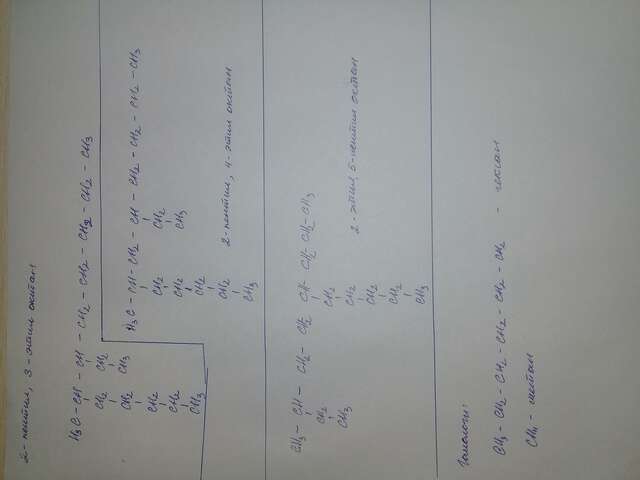 2-пентил, 3-этил октан
H₃C – CH – CH – CH₂ – CH₂ – CH₂ – CH₂ – CH₃
CH₂ CH₂
CH₂ CH₃
CH₂
CH₂
CH₃
H₃C – CH – CH₂ – CH – CH₂ – CH₂ – CH₂ – CH₃
CH₂ CH₂
CH₂ CH₃
CH₂
CH₂
CH₃
2-пентил, 4-этил октан
CH₃ – CH – CH₂ – CH₂ CH CH₂ CH₂ – CH₃
CH₂ CH₂
CH₃ CH₂
CH₂
CH₂
CH₃
2-этил, 5-пентил октан
Гомологи:
CH₃ – CH₂ – CH₂ – CH₂ – CH₂ – CH₂ – гексан
CH₄ – метан